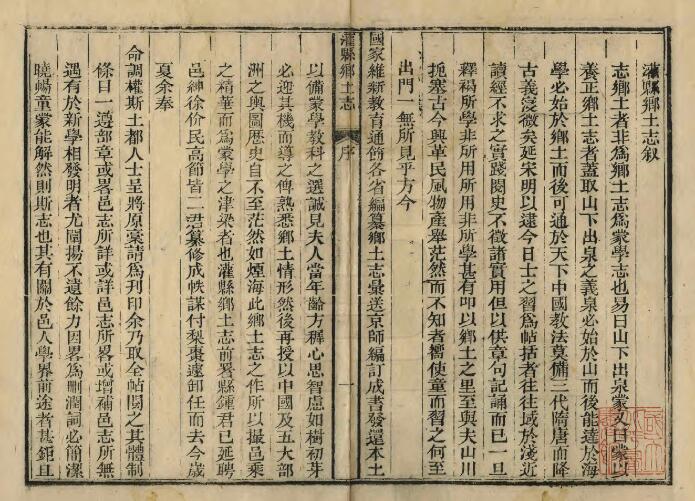 灌縣鄉土志敘
志鄉土者非爲鄉土志爲蒙學志也易曰山下出泉蒙又曰蒙以
養正鄉土志者蓋取山下出泉之義泉必始於山而後能達於海
學必始於鄉土而後可通於天下中國教法莫備三代隋唐而降
古義寖微矣延宋明以逮今日士之習爲帖括者往往域於淺近
讀經不求之實踐閱史不徵諸實用但以供章句記誦而已一旦
釋褐所學非所用所用非所學甚有叩以鄉土之里至與夫山川
扼塞古今興革民風物產舉茫然而不知者嚮使童而習之何至
出門一無所見乎方今
國家維新教育通飭各省編纂鄉土志彙送京師編訂成書發還本土
灌縣鄉土志 序 一
以備蒙學教科之選誠見夫人當年齡方稺心思智慮如樹初芽
必迎其機而導之俾熟悉鄉土情形然後再授以中國及五大部
洲之輿圖歷史自不至茫然如煙海此鄉土志之作所以撮邑乘
之精華而爲蒙學之津梁者也灌縣鄉土志前署縣鍾君已延聘
邑紳徐份民高節皆二君纂修成帙謀付梨棗遽卸任而去今歲
夏余奉
命調權斯土都人士呈將原稾請爲刊印余乃取全帖閱之其體制
條目一遵部章或畧邑志所詳或詳邑志所畧或增補邑志所無
遇有於新學相發明者尤闡揚不遺餘力因畧爲刪潤詞必簡潔
曉暢童蒙能解然則斯志也其有關於邑人學界前途者甚鉅且